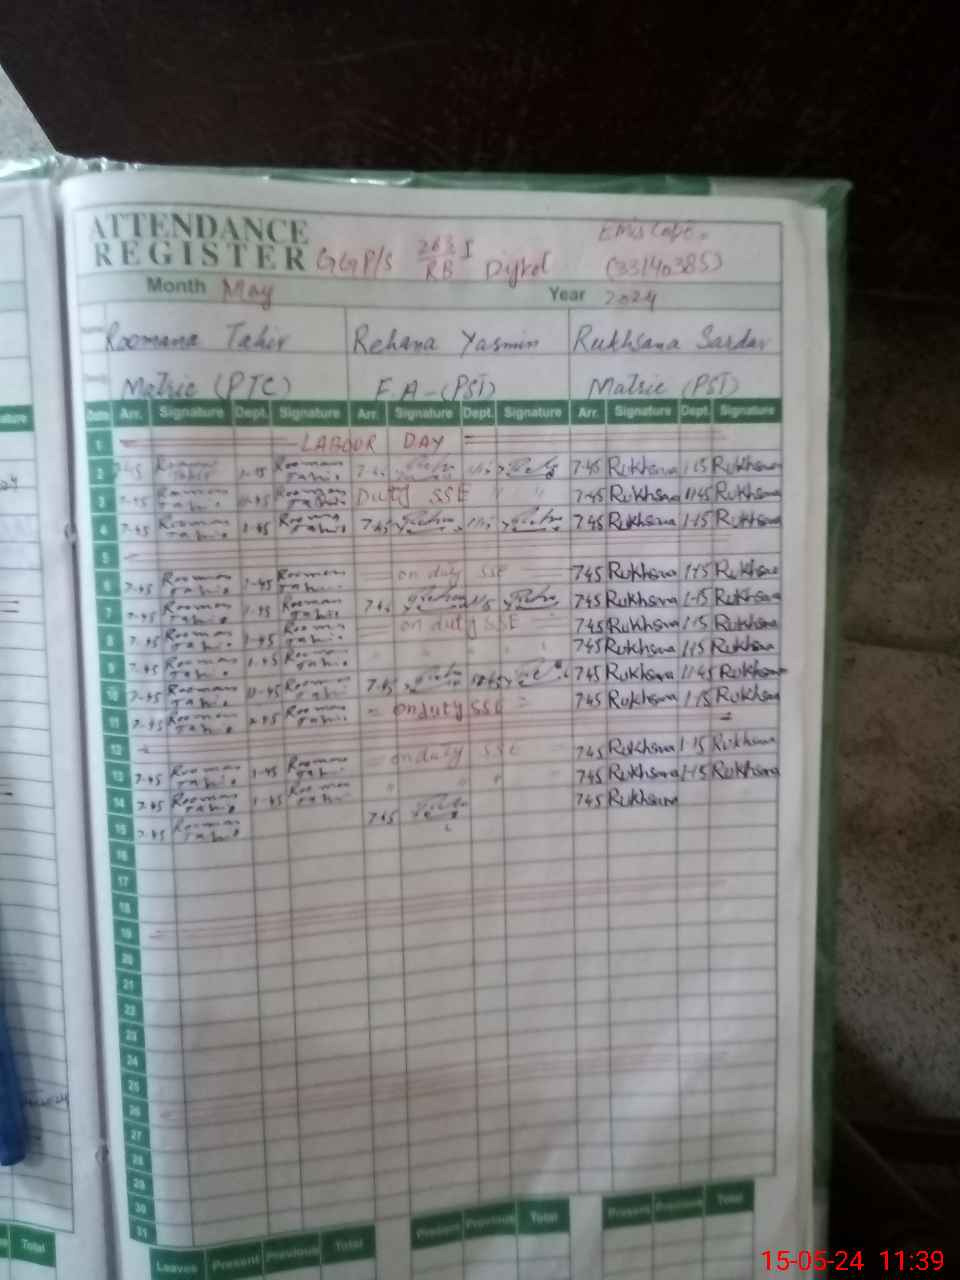 ATTENDANCE
REGISTER GGP/S 263 I/RB Dijkot EMIS Code.
(33140385)
Month May Year 2024
Roomana Tahir Rehana Yasmin Rukhsana Sardar
Matric (PTC) F.A-(PST) Matric (PST)
Date Arr. Signature Dept. Signature Arr. Signature Dept. Signature Arr. Signature Dept. Signature
1 LABOUR DAY
2 7-45 Rooman Tahir 1-45 Rooman Tahir 7:45 7-45 Rukhsana 1-15 Rukhsana
3 7-45 Rooman Tahir 11-45 Rooman Tahir Duty SSE " " 7-45 Rukhsana 11:45 Rukhsana
4 7-45 Rooman Tahir 1-45 Rooman Tahir 7:45 7.45 Rukhsana 1-15 Rukhsana
5
6 7-45 Rooman Tahir 1-45 Rooman Tahir on duty SSE 7.45 Rukhsana 1-15 Rukhsana
7 7-45 Rooman Tahir 1-45 Rooman Tahir 7:45 7.45 Rukhsana 1-15 Rukhsana
8 7-45 Rooman Tahir 1-45 Rooman Tahir on duty SSE 7.45 Rukhsana 1-15 Rukhsana
9 7-45 Rooman Tahir 1-45 Rooman Tahir " " " 7.45 Rukhsana 1-15 Rukhsana
10 7-45 Rooman Tahir 11-45 Rooman Tahir 7:45 7.45 Rukhsana 11-45 Rukhsana
11 7-45 Rooman Tahir Rooman Tahir on duty SSE 7.45 Rukhsana 1-15 Rukhsana
12
13 7-45 Rooman Tahir 1-45 Rooman Tahir on duty SSE 7.45 Rukhsana 1-15 Rukhsana
14 7-45 Rooman Tahir 1-45 Rooman Tahir " " " 7.45 Rukhsana 1-15 Rukhsana
15 7-45 Rooman Tahir 7:45 7.45 Rukhsana
16
17
18
19
20
21
22
23
24
25
26
27
28
29
30
31
Total Leaves Present Previous Total Present Previous Total Present Previous Total
15-05-24 11:39